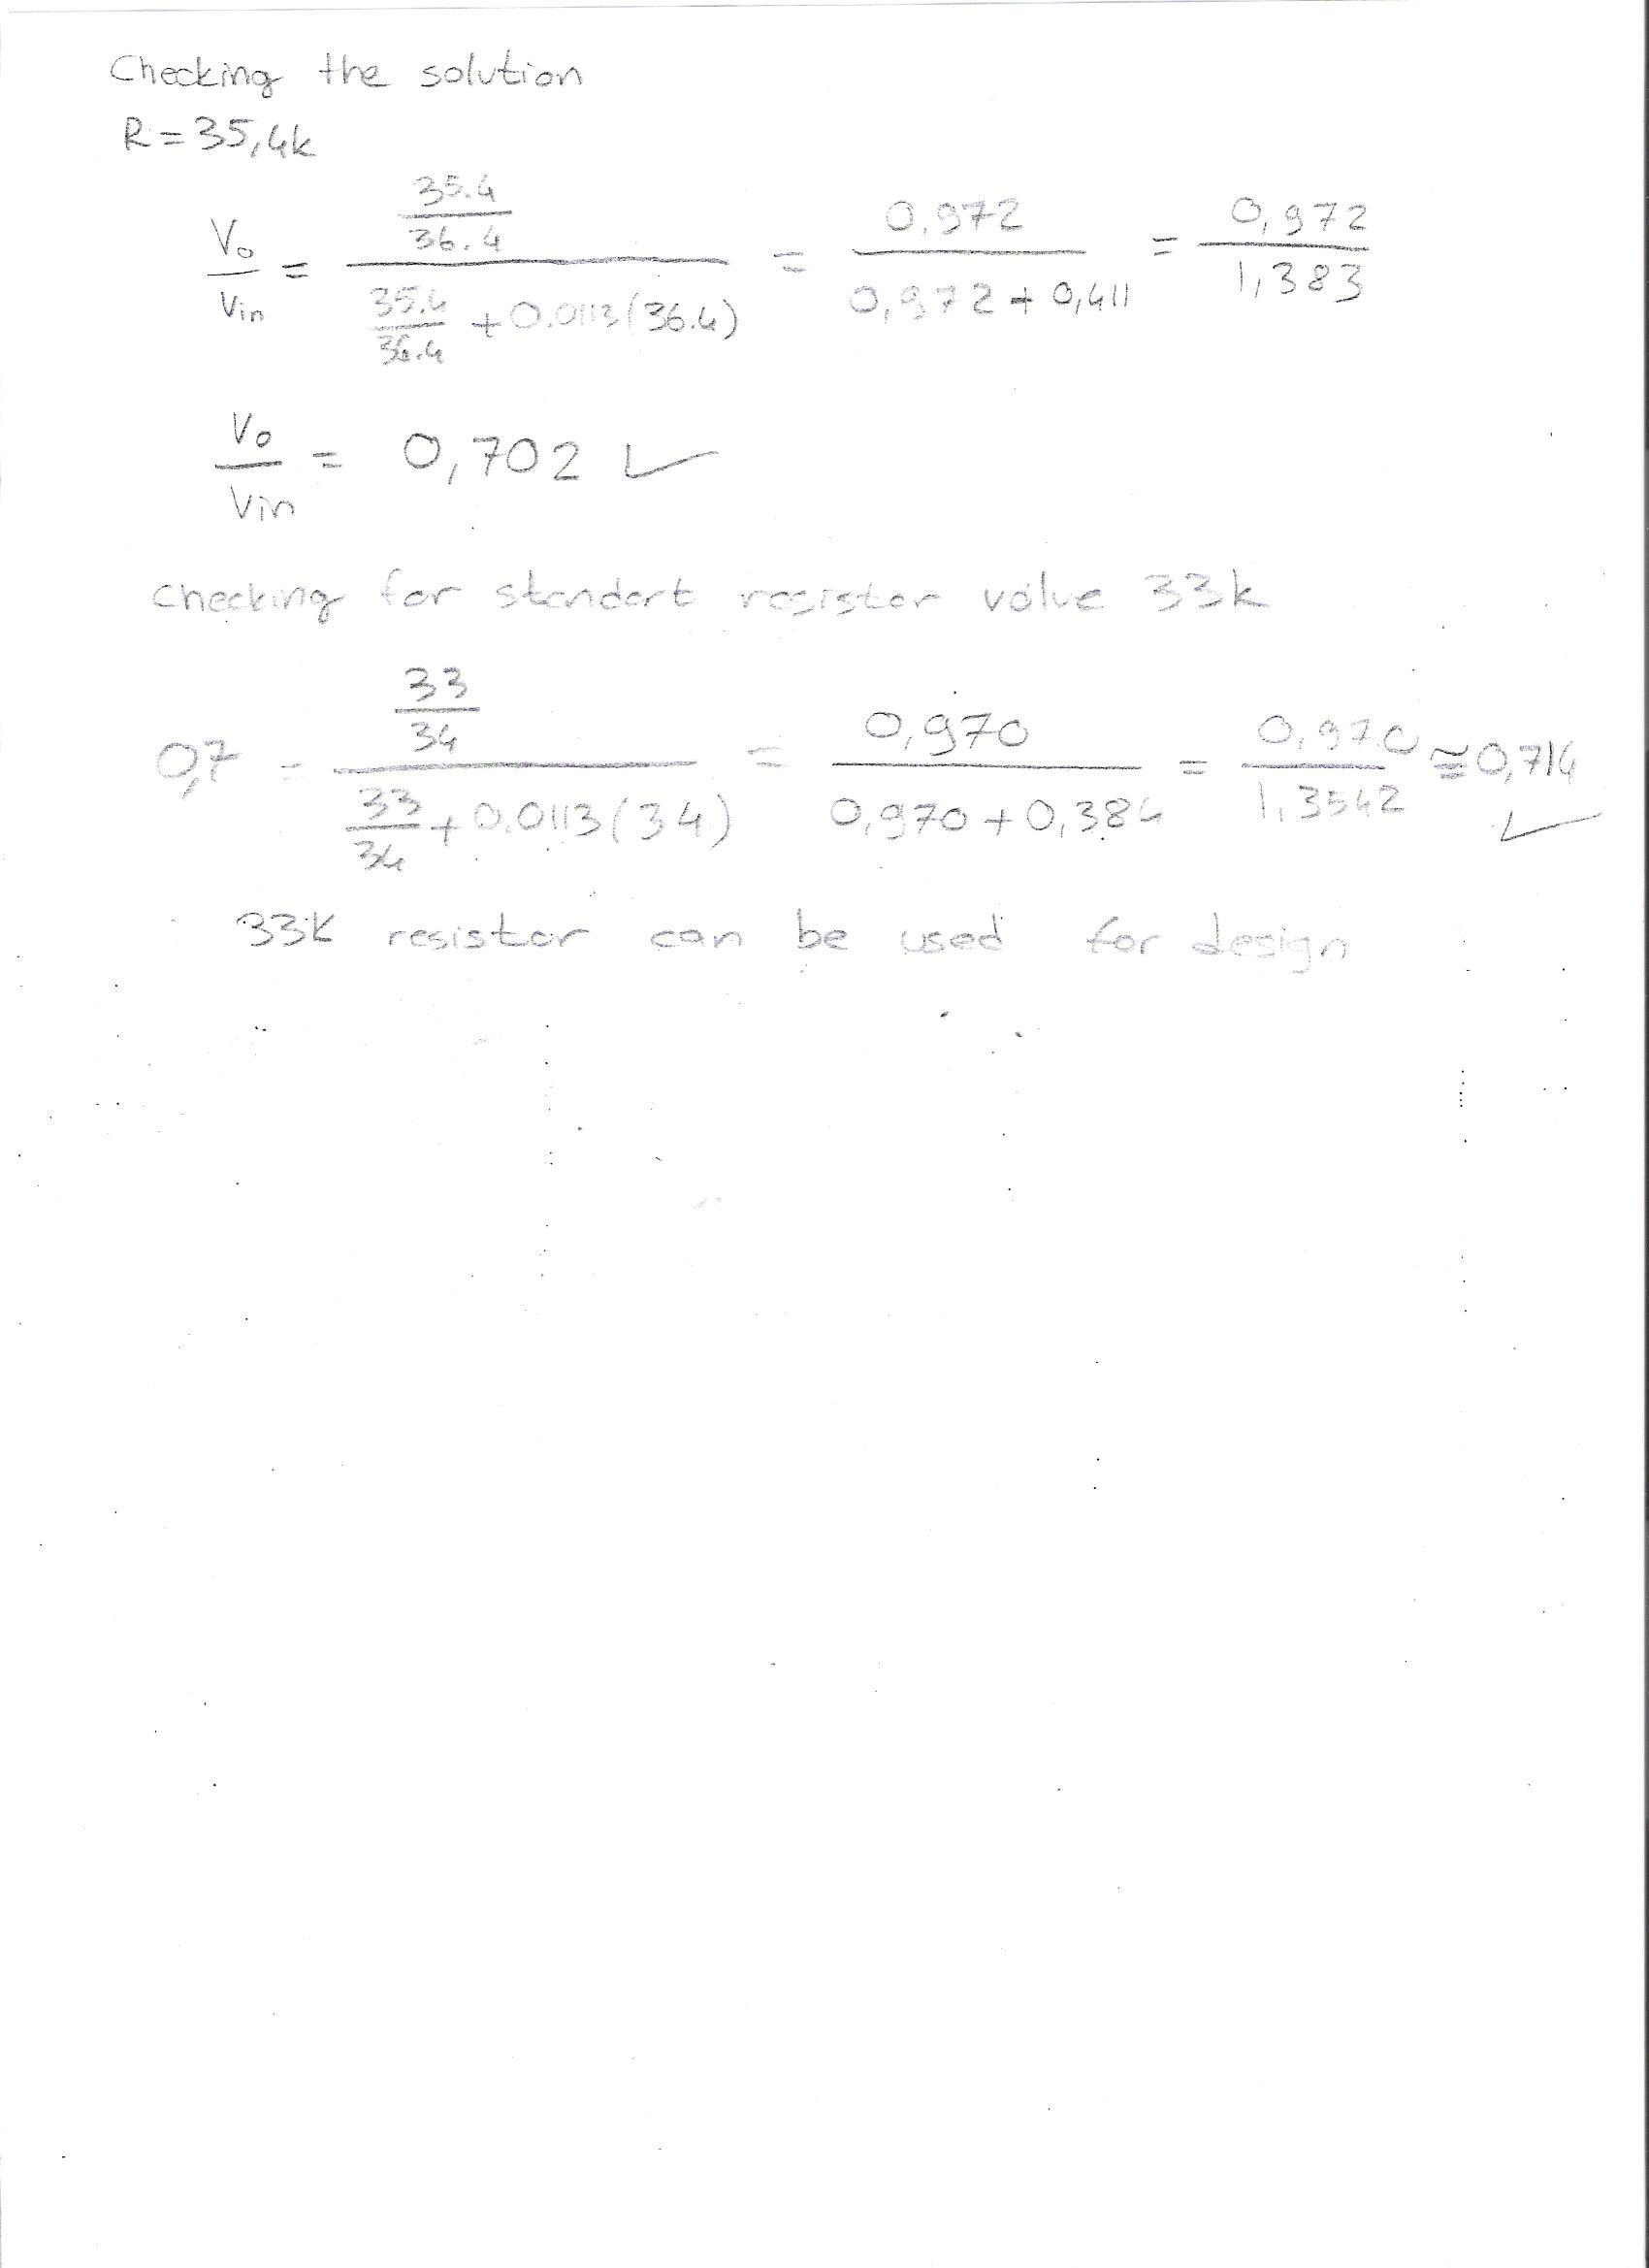 Checking the solution
R = 35,4k
Vo/Vin = (35.4/36.4) / (35.4/36.4 + 0.0113(36.4)) = 0,972 / (0,972 + 0,411) = 0,972 / 1,383
Vo/Vin = 0,702 ✓
Checking for standart resistor value 33k
0,7 = (33/34) / (33/34 + 0.0113(34)) = 0,970 / (0,970 + 0,384) = 0,970 / 1,3542 ≅ 0,714 ✓
33K resistor can be used for design